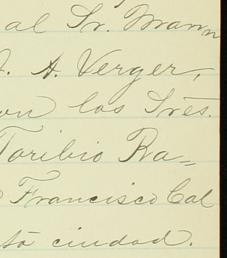 al Sr. Mann
A. Verger,
on los Sres.
Toribio Ra=
Francisco Cal
ciudad.